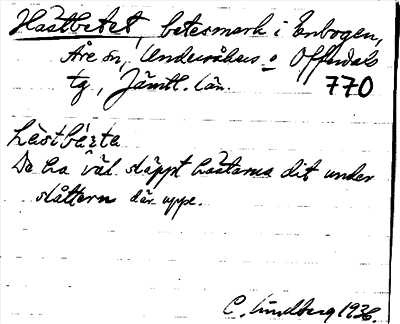 Hästbetet, betesmark i Enbogen,
Åre sn, Undersåkers o Offerdals
tg, Jämtl. län. 770
Hä̀stbè̩ta
De ha väl släppt hästarna dit under
slåttern där uppe.
C. Lindberg 1936.